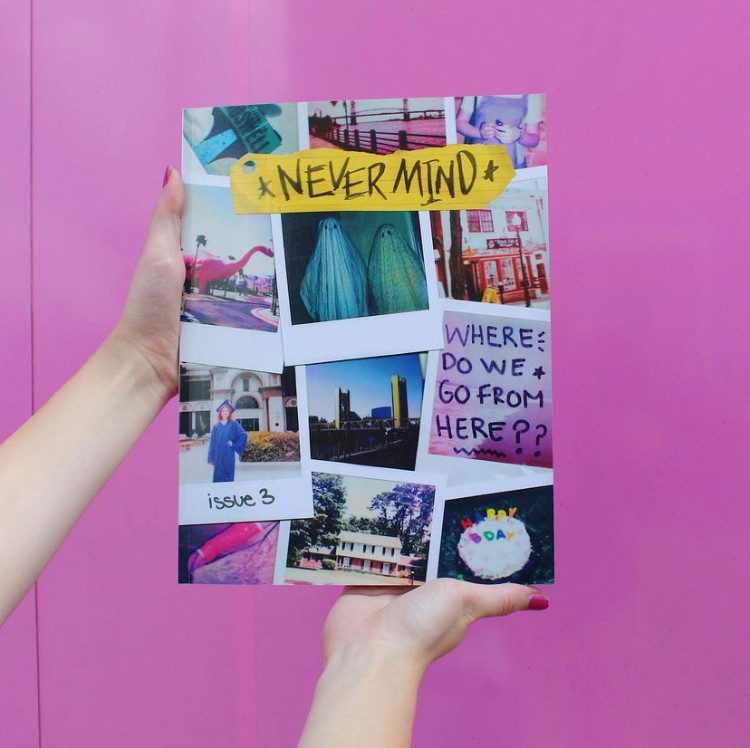 *NEVER MIND*
WHERE
DO WE *
GO FROM
HERE??
issue 3
HAPPY
BDAY